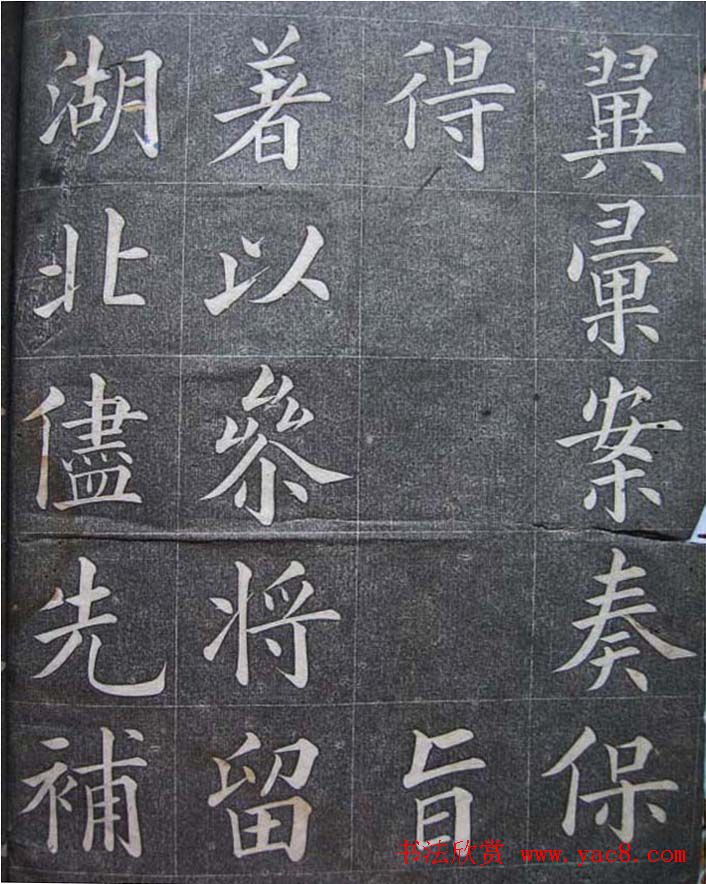 翼彙案奏保
得旨
著以叅将留
湖北儘先補
书法欣赏 www.yac8.com